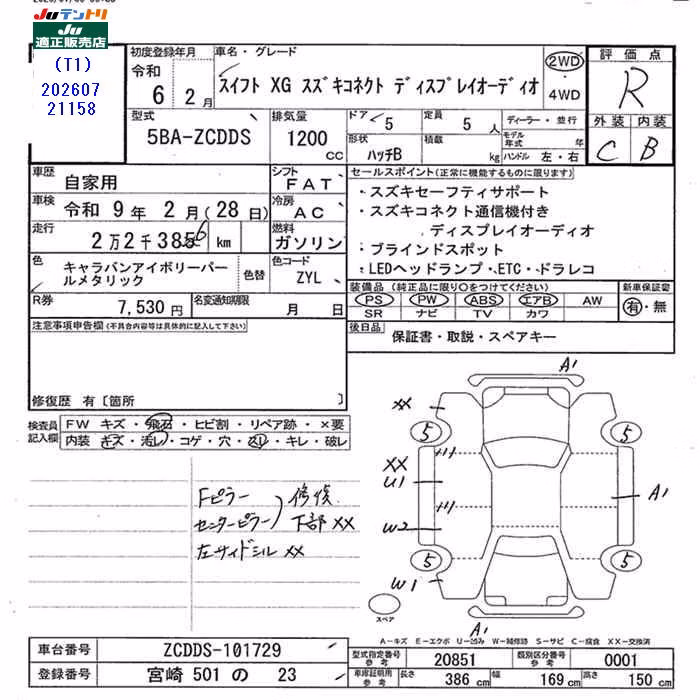 Juテントリ
Ju
適正販売店
(T1)
202607
21158
初度登録年月
令和
6 2月
車名・グレード
スイフト XG スズキコネクト ディスプレイオーディオ
2WD
・
4WD
評価点
R
外装 内装
C B
型式
5BA-ZCDDS
排気量
1200
cc
ドア
5
定員
5 人
形状
ハッチB
積載
kg
ディーラー・並行
モデル年式 年
ハンドル 左・右
車歴
自家用
シフト
FAT
車検
令和 9年 2月(28日)
冷房
AC
走行
2万2千385 6 km
燃料
ガソリン
色
キャラバンアイボリーパールメタリック
色替
色コード
ZYL
R券
7,530円
名変通知期限
月 日
セールスポイント(正常に機能するものに限ります)
・スズキセーフティサポート
・スズキコネクト通信機付き
ディスプレイオーディオ
・ブラインドスポット
・LEDヘッドランプ・ETC・ドラレコ
装備品(純正品に限り○をつけてください)
PS PW ABS エアB AW
SR ナビ TV カワ
新車保証書
有・無
後日品
保証書・取説・スペアキー
注意事項申告欄(不具合内容等は具体的に記入して下さい)
修復歴 有〔箇所 〕
検査員記入欄
FW キズ・飛石・ヒビ割・リペア跡・×要
内装 キズ・汚レ・コゲ・穴・スリ・キレ・破レ
Fピラー
センターピラー
修復
下部 XX
左サイドシル XX
A1
XX
5
5
XX
U1
W2
A1
5
5
W1
A1
スペア
A-キズ E-エクボ U-凹み W-補修跡 S-サビ C-腐食 XX-交換済
車台番号
ZCDDS-101729
登録番号
宮崎 501 の 23
型式指定番号
参考
20851
類別区分番号
参考
0001
車庫証明用
参考
長さ
386 cm
幅
169 cm
高さ
150 cm